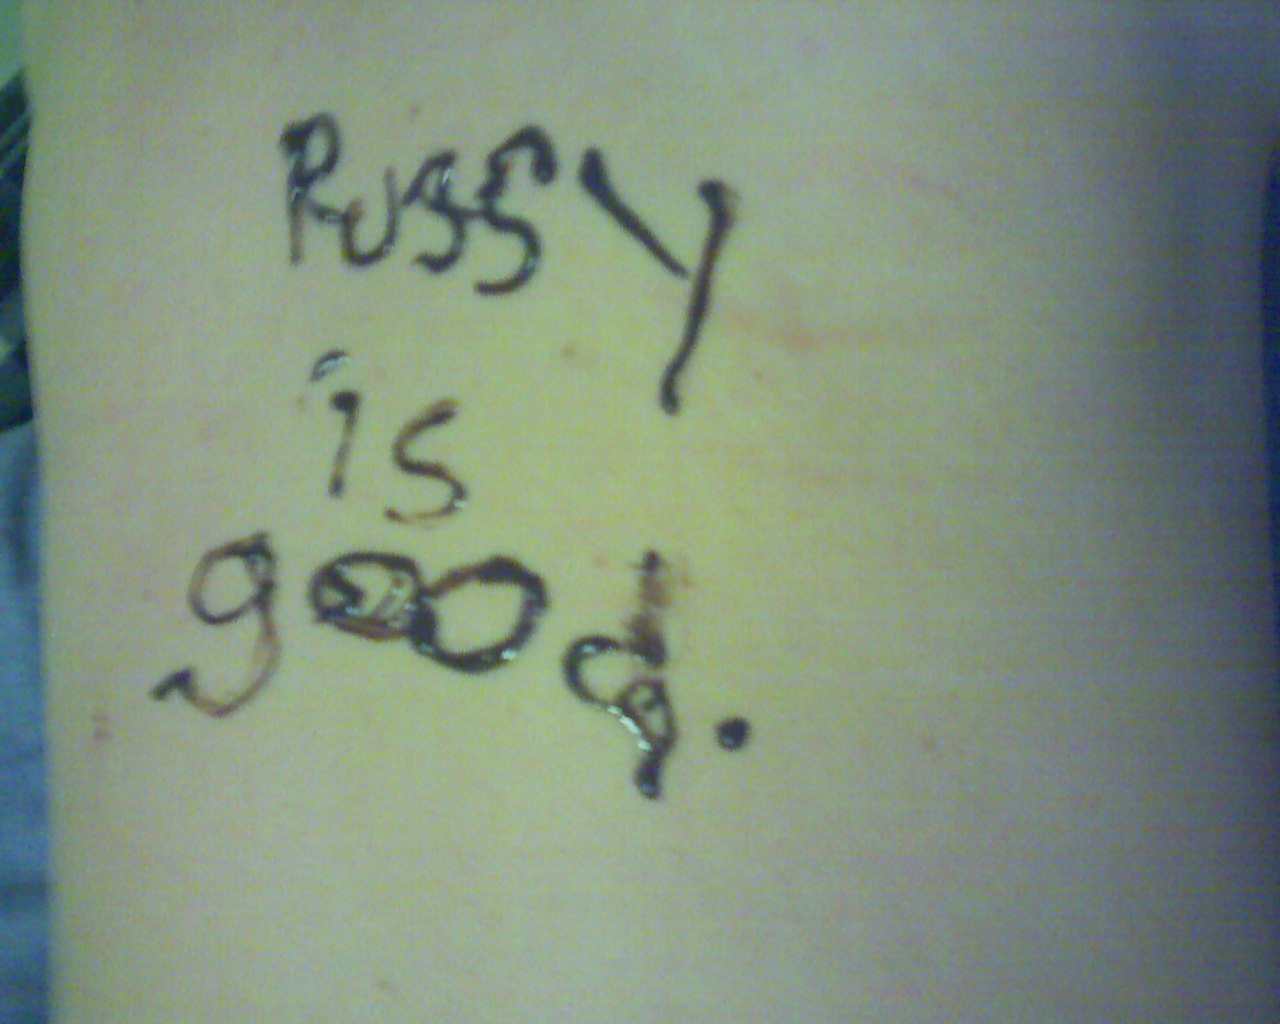 Pussy
is
good.